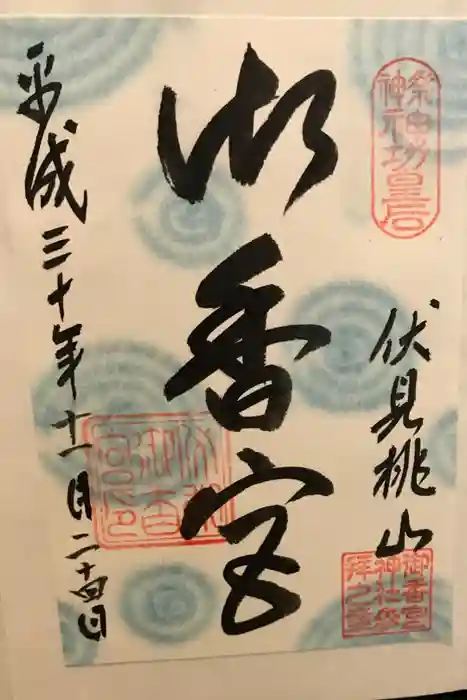 祭神
神功皇后
伏見桃山
御香宮
神社参
拝之章
御香宮
平成三十年十一月二十四日